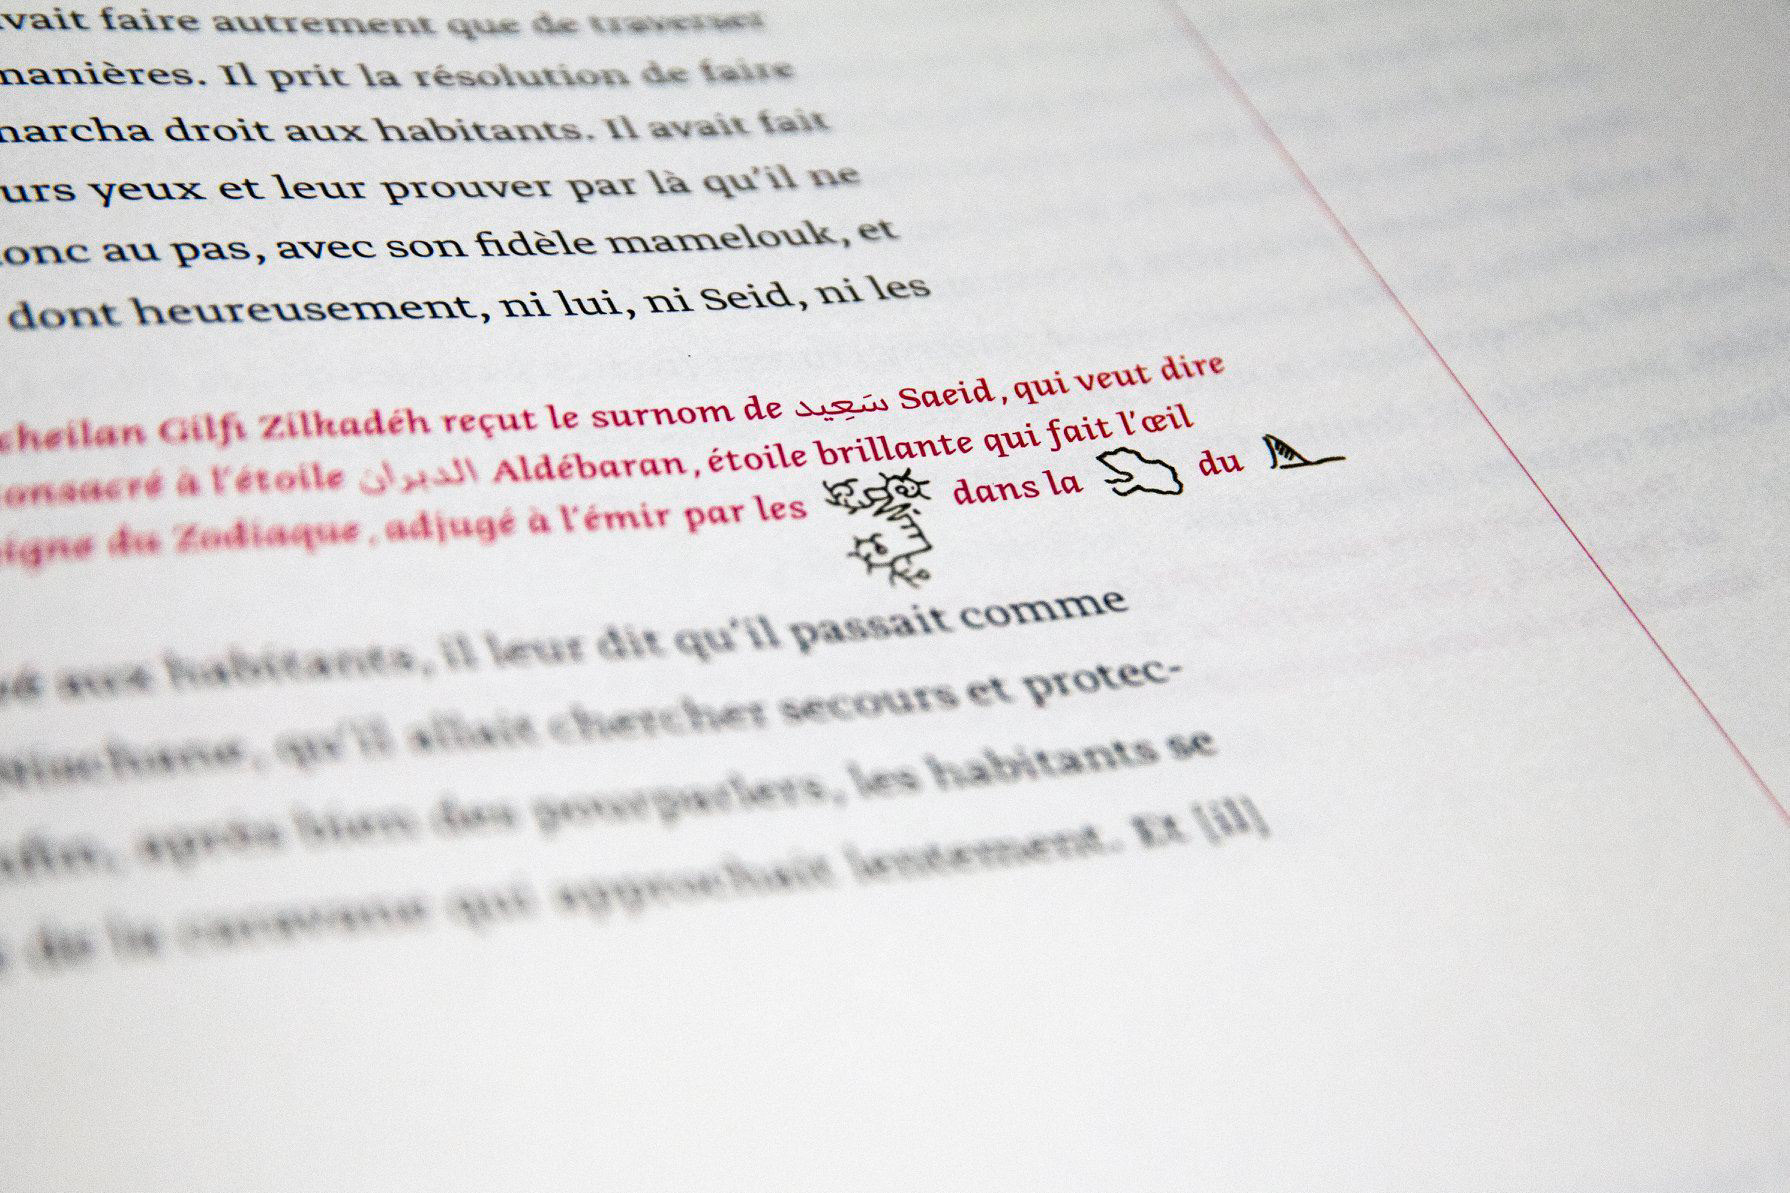 vait faire autrement que de traverser
manières. Il prit la résolution de faire
marcha droit aux habitants. Il avait fait
urs yeux et leur prouver par là qu'il ne
onc au pas, avec son fidèle mamelouk, et
dont heureusement, ni lui, ni Seid, ni les
cheilan Gilfi Zilkadéh reçut le surnom de سَعِيد Saeid, qui veut dire
onsacré à l'étoile الدبران Aldébaran, étoile brillante qui fait l'œil
signe du Zodiaque, adjugé à l'émir par les dans la du
aux habitants, il leur dit qu'il passait comme
qu'il allait chercher secours et protec-
nfin, après bien des pourparlers, les habitants se
de la caravane qui approchait lentement. Et [il]